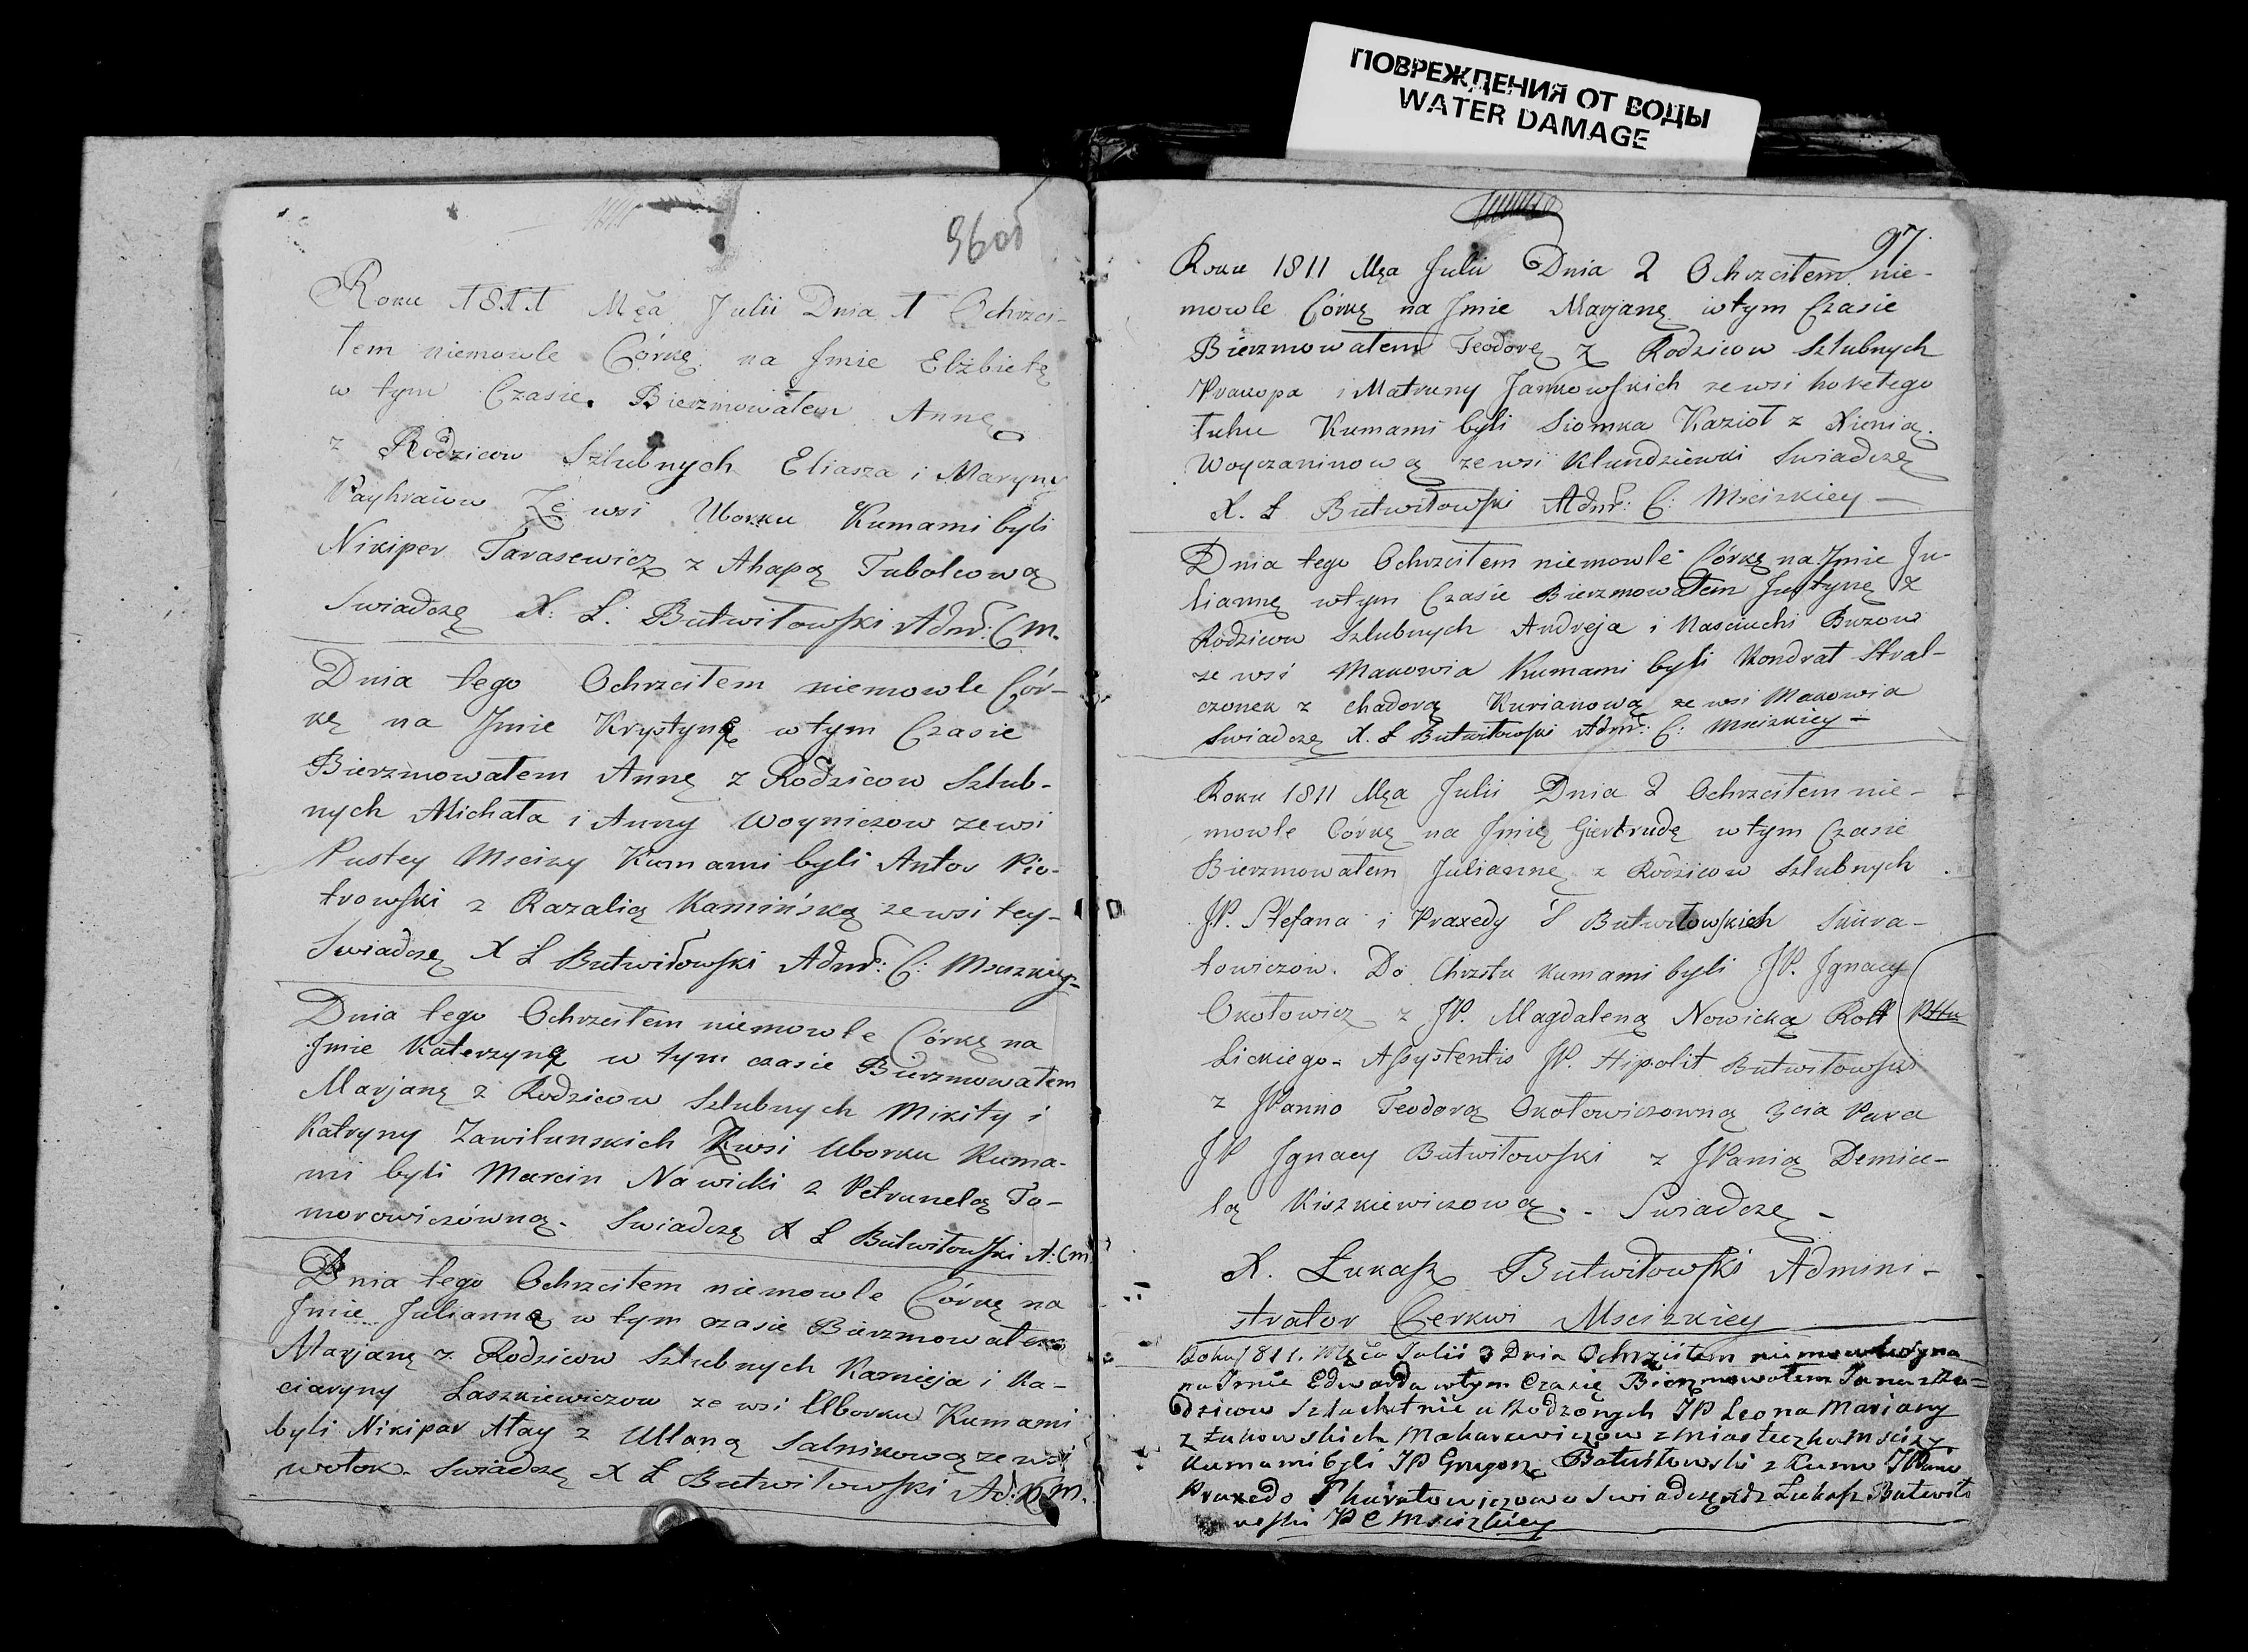 ПОВРЕЖДЕНИЯ ОТ ВОДЫ
WATER DAMAGE
96об
Roku 1811 Mca Julii Dnia 1 Ochrzci-
łem niemowle Córkę na Jmie Elżbietę
w tym Czasie Bierzmowałem Annę
z Rodzicow Szlubnych Eliasza i Maryny
Ze wsi Uborku Kumami byli
Nikiper Tarasewicz z Ahapą Tubolcową
Swiadczę X: Ł: Butwiłowski Admr: C M.
Dnia tego Ochrzciłem niemowle Cór-
kę na Jmie Krystynę w tym Czasie
Bierzmowałem Annę z Rodzicow Szlub-
nych Michała i Anny Woyniczow ze wsi
Pustey Mscizy Kumami byli Antos Pio-
trowski z Razalią Kamińską ze wsi tey-
Swiadczę X Ł Butwiłowski Admr: C: Mscizkiey-
Dnia tego Ochrzciłem niemowle Córkę na
Jmie Katerzynę w tym czasie Bierzmowałem
Marjanę z Rodzicow Szlubnych Mikity i
Katryny Zawilunskich Zwsi Uborku Kuma-
mi byli Marcin Nawicki z Petrunelą To-
morowiczówną. Swiadczę X Ł Butwiłowski A: C M
Dnia tego Ochrzciłem niemowle Córkę na
Jmie Juliannę w tym czasie Bierzmowałem
Marjanę z Rodzicow Szlubnych Karnieja i Ka-
ciaryny Łaszkiewiczow ze wsi Uborku Kumami
byli Nikipar Atay z Ullaną Salnikową ze wsi
wołok. Swiadczę X Ł Butwiłowski Ad: C M.
97
Roku 1811 Mca Julii Dnia 2 Ochrzciłem nie-
mowle Córkę na Jmie Marjanę w tym Czasie
Bierzmowałem Teodorę z Rodzicow Szlubnych
Prakopa i Matruny Jankowskich ze wsi horełego
łuhu Kumami byli Siomka Kazioł z Xienią
Woyczaninową ze wsi Klundziewki Swiadczę
X. Ł Butwiłowski Admr: C: Mscizkiey-
Dnia tego Ochrzciłem niemowle Córkę na Jmie Ju-
liannę w tym Czasie Bierzmowałem Justynę z
Rodzicow Szlubnych Andreja i Nasciuchi Buzow
ze wsi Makowia Kumami byli Kondrat Stral-
czonek z chadorą Kurianową ze wsi Makowia
Swiadczę X. Ł Butwiłowski Admr: C: Mscizkiey-
Roku 1811 Mca Julii Dnia 2 Ochrzciłem nie-
mowle Córkę na Jmię Giertrudę w tym Czasie
Bierzmowałem Juliannę z Rodzicow Szlubnych
JP. Stefana i Praxedy z Butwiłowskich Skura-
towiczow. Do Chrztu kumami byli JP. Jgnacy
Okołowicz z JP. Magdaleną Nowicką Rott
Lickiego. Assystentis JP. Hipolit Butwiłowski
z JPanno Teodorą Okołowiczowną 3cia Para
JP Jgnacy Butwiłowski z JPanią Demice-
lą Kiszkiewiczową. - Swiadczę -
X. Łukasz Butwiłowski Admini-
strator Cerkwi Mscizkiey
Roku 1811. Męca Julii 3 Dnia Ochrzciłem niemowle syna
na Jmie Edwarda w tym Czasię Bierzmowałem Jana z Ro-
dzicow Szlachetnie urodzonych JP Leona Mariany
z Łukowskich Makarewiczow z Miasteczka Mscizy
Kumami byli JP Grzegorz Butwiłowski z Kumo JPanno
Praxedo Skuratowiczowo Swiadczę Xdz Łukasz Butwiło
wski P C Mscizkiey